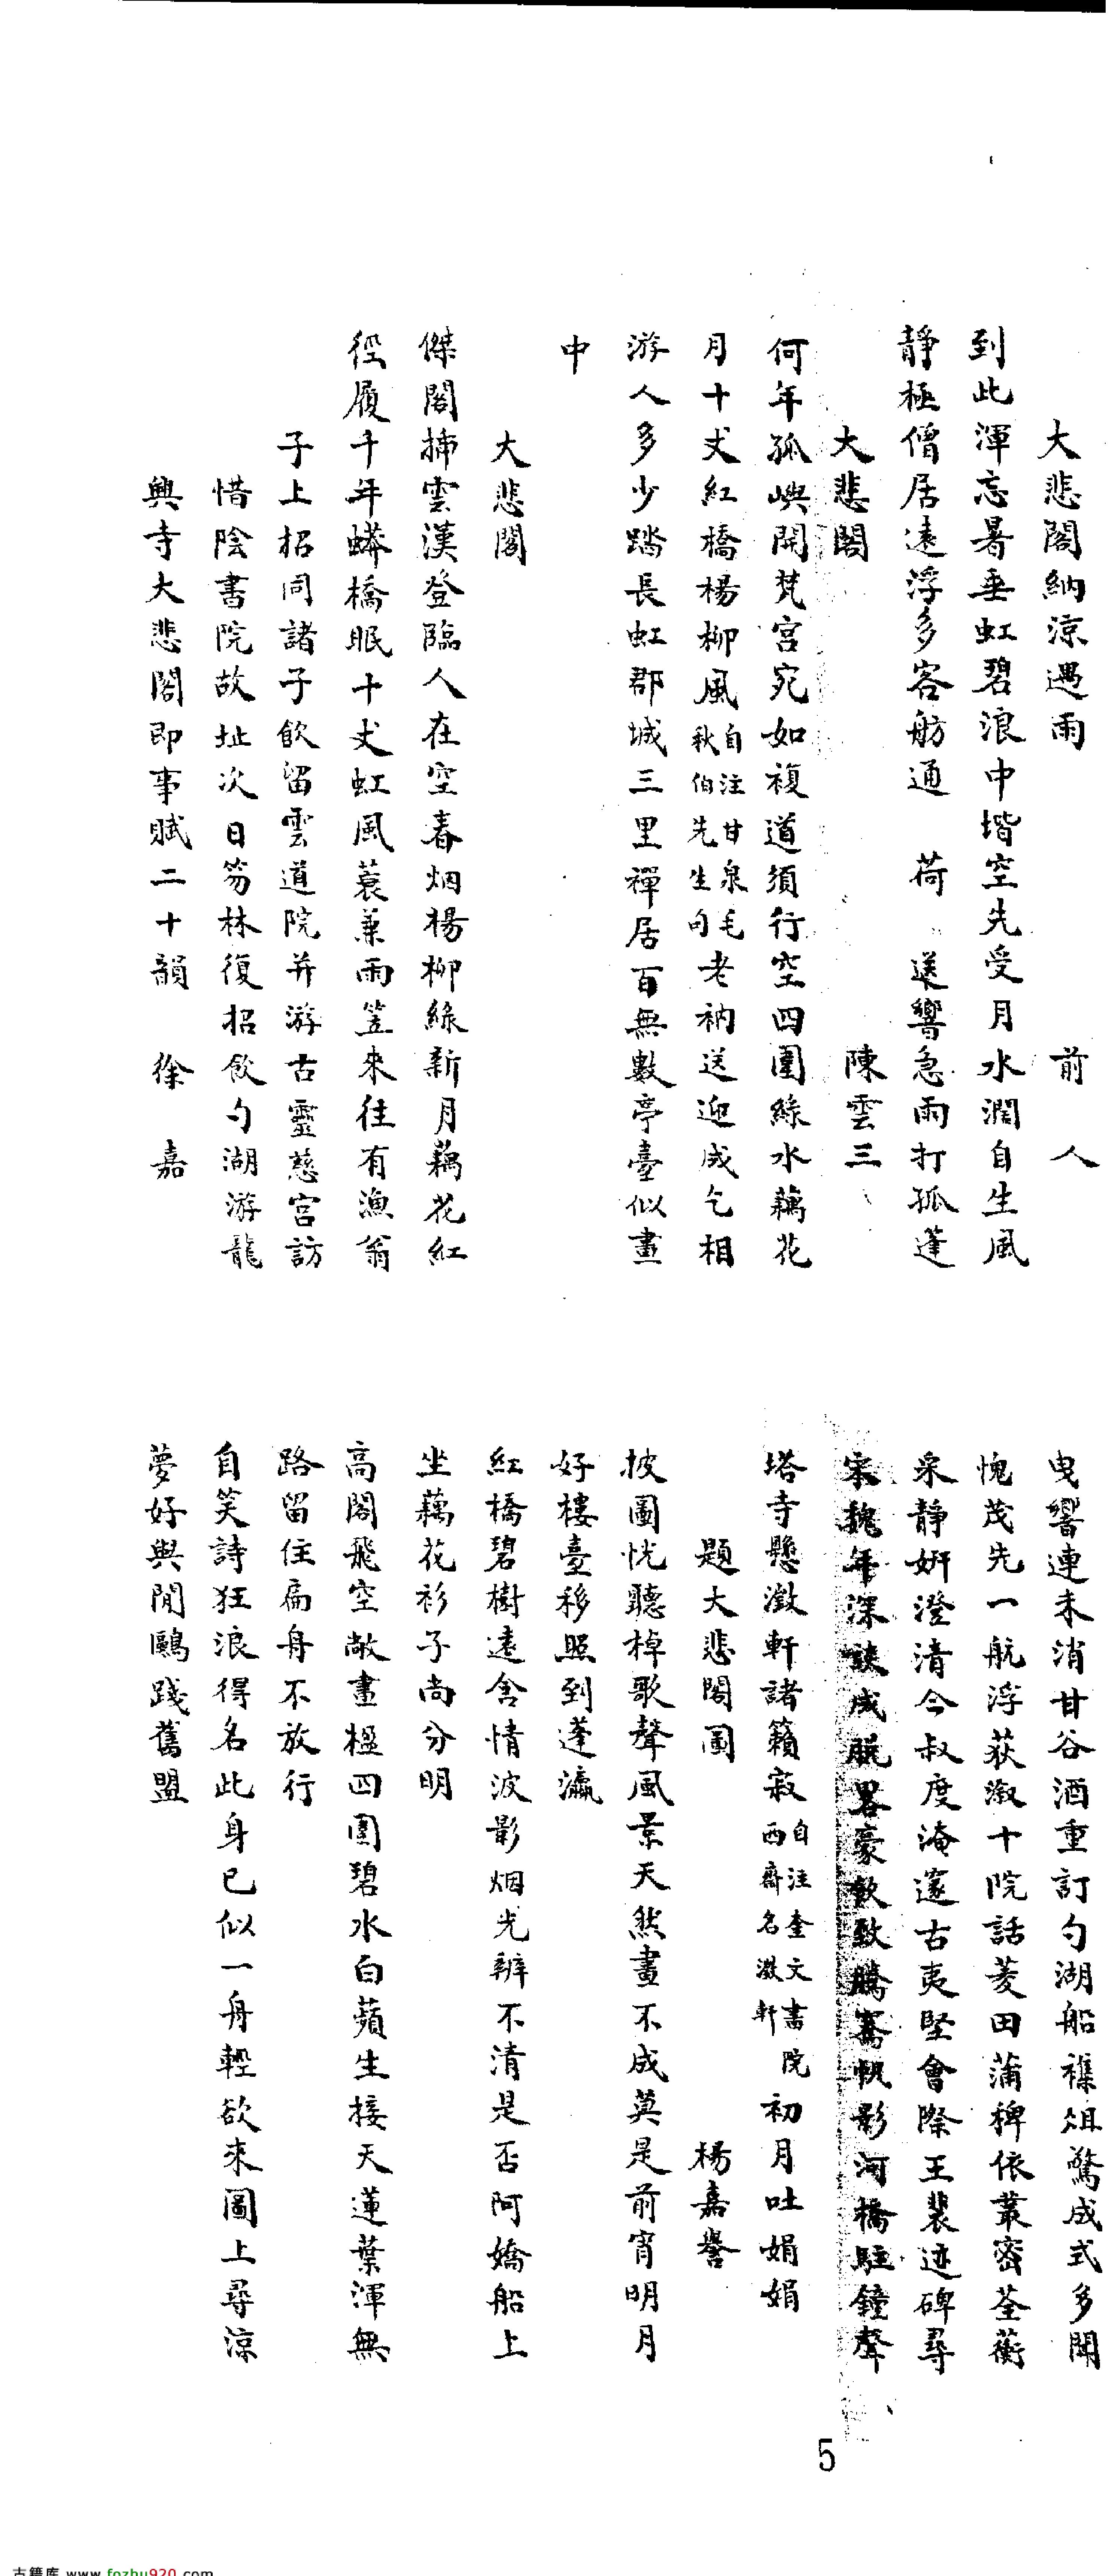 大悲閣納涼遇雨　前人
到此渾忘暑垂虹碧浪中堦空先受月水濶自生風
靜極僧居遠浮多客舫通荷送響急雨打孤篷
大悲閣　陳雲三
何年孤嶼開梵宮宛如複道須行空四圍綠水藕花
月十丈紅橋楊柳風自注甘泉毛秋伯先生句老衲送迎成乞相
游人多少踏長虹郡城三里禪居百無數亭臺似畫
中
大悲閣
傑閣揷雲漢登臨人在空春烟楊柳綠新月藕花紅
徑履千年蟒橋眠十丈虹風蓑兼雨笠來往有漁翁
子上招同諸子飲留雲道院并游古靈慈宮訪
惜陰書院故址次日笏林復招飲勺湖游龍
興寺大悲閣即事賦二十韻　徐嘉
曳響連未消甘谷酒重訂勺湖船襍俎驚成式多聞
愧茂先一航浮荻溆十院話菱田蒲稗依叢密荃蘅
采靜妍澄清今叔度淹邃古夷堅會際王裴迹碑尋
宋魏年深談成脫畧豪飲致騰騫帆影河橋駐鐘聲
塔寺懸澂軒諸籟寂自注奎文書院西齋名澂軒初月吐娟娟
題大悲閣圖　楊嘉譽
披圖恍聽棹歌聲風景天然畫不成莫是前宵明月
好樓臺移照到蓬瀛
紅橋碧樹遠含情波影烟光辨不清是否阿嬌船上
坐藕花衫子尚分明
高閣飛空敞畫楹四圍碧水白蘋生接天蓮葉渾無
路留住扁舟不放行
自笑詩狂浪得名此身已似一舟輕欲來圖上尋涼
夢好與閒鷗踐舊盟
5
古籍库 www.fozhu920.com